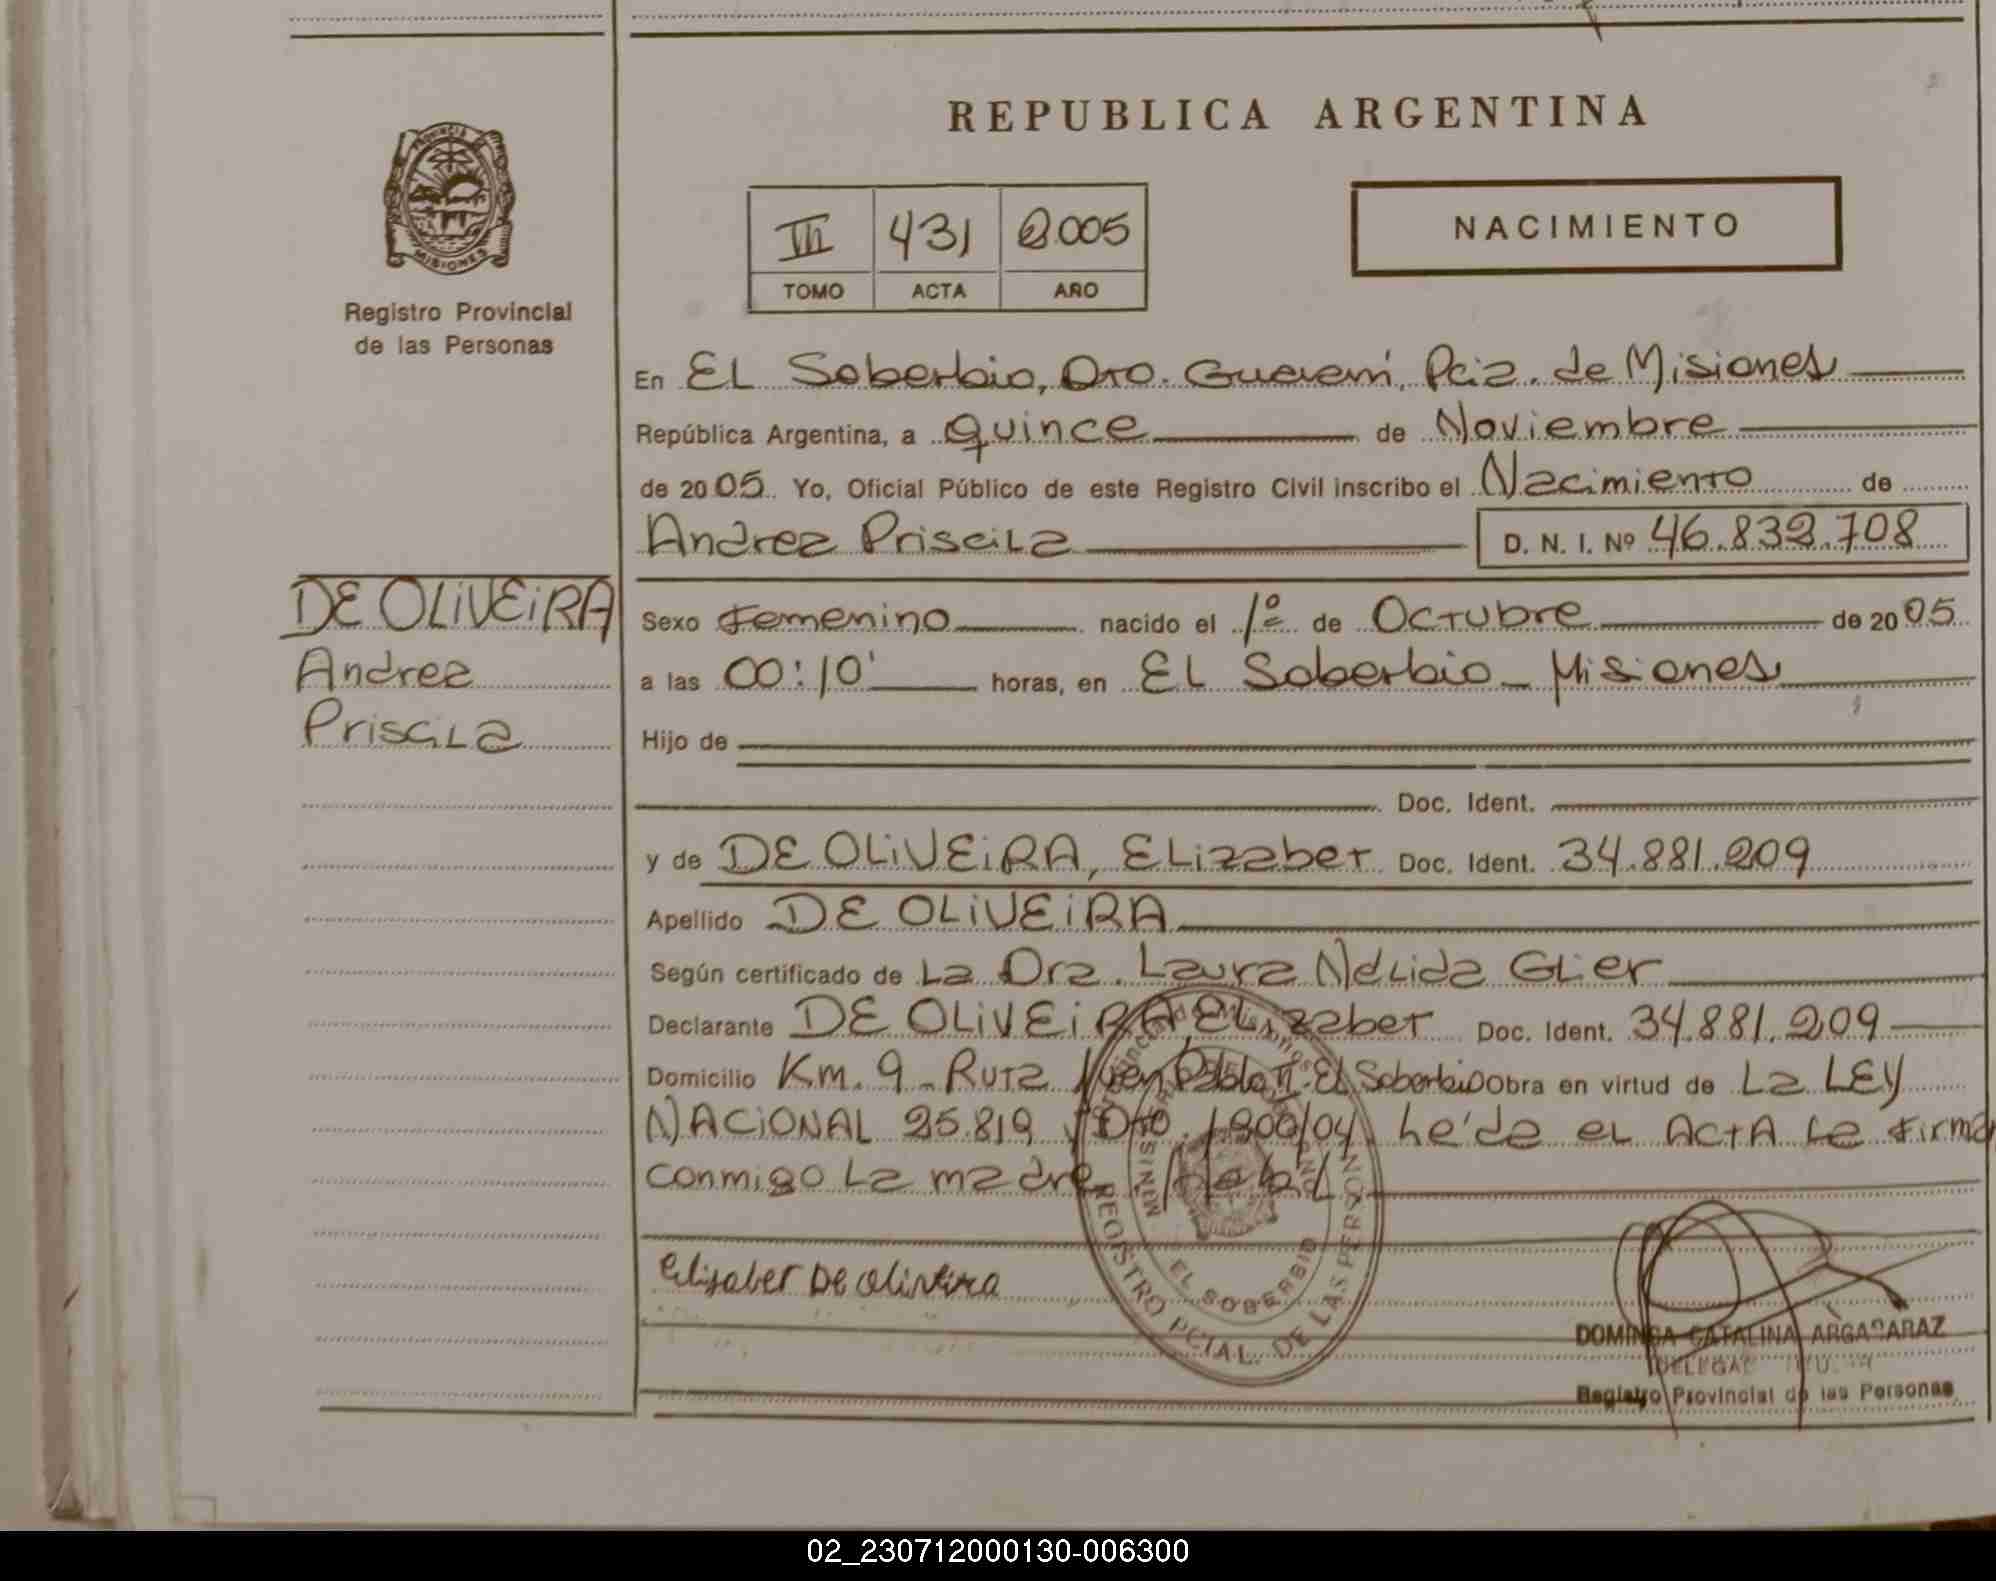 REPUBLICA ARGENTINA
PROVINCIA
MISIONES
Registro Provincial
de las Personas
III 431 2005
TOMO ACTA AÑO
NACIMIENTO
En EL Soberbio, Dto. Guaraní, Pcia. de Misiones
República Argentina, a quince de Noviembre
de 2005. Yo, Oficial Público de este Registro Civil inscribo el Nacimiento de
Andrea Priscila D. N. I. Nº 46.832.708
DE OLIVEIRA
Andrea
Priscila
Sexo Femenino nacido el 1º de Octubre de 2005
a las 00:10' horas, en EL Soberbio - Misiones
Hijo de
Doc. Ident.
y de DE OLIVEIRA, Elizabet Doc. Ident. 34.881.209
Apellido DE OLIVEIRA
Según certificado de La Dra. Laura Nélida Glier
Declarante DE OLIVEIRA, Elizabet Doc. Ident. 34.881.209
Domicilio Km. 9 - Ruta Juan Pablo II - El Soberbio Obra en virtud de La LEY
NACIONAL 25.819 y Dto. 1900/04. Leída el ACTA la firma
conmigo la madre
Elisabet De oliveira
REGISTRO PCIAL. DE LAS PERSONAS
EL SOBERBIO
DOMINGA CATALINA ARGAÑARAZ
Registro Provincial de las Personas
02_230712000130-006300